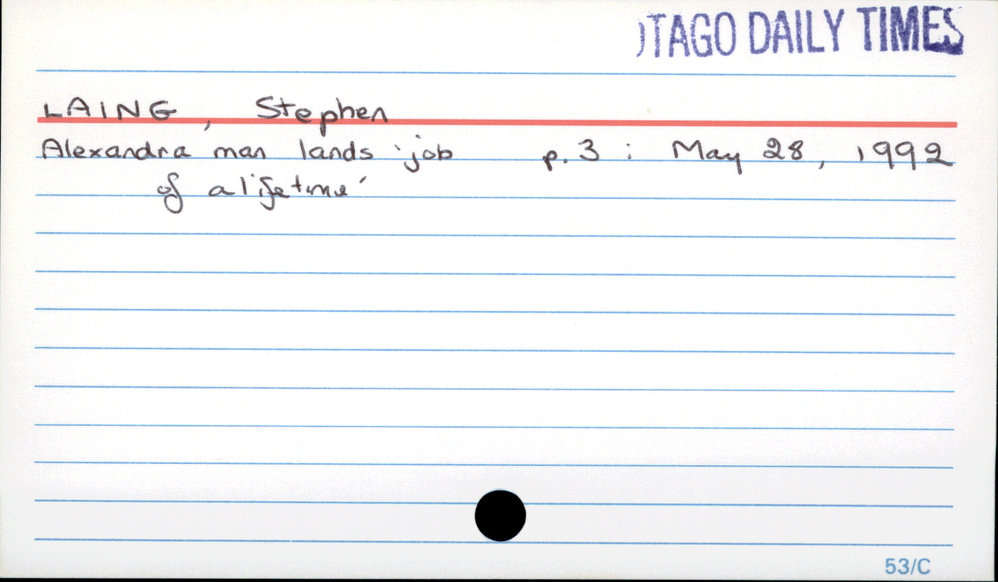 OTAGO DAILY TIMES
LAING, Stephen
Alexandra man lands 'job p.3 : May 28, 1992
of a lifetime'
53/C